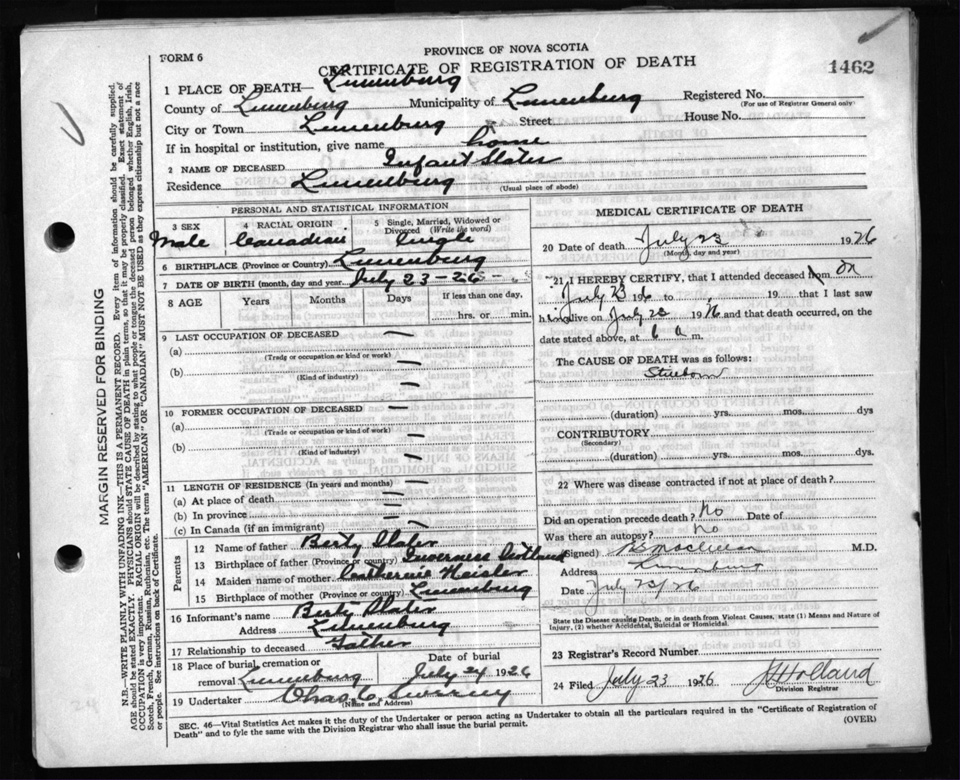 PROVINCE OF NOVA SCOTIA
FORM 6
CERTIFICATE OF REGISTRATION OF DEATH
1462
1 PLACE OF DEATH— Lunenburg
Registered No.
(For use of Registrar General only)
County of Lunenburg Municipality of Lunenburg
House No.
City or Town Lunenburg Street
If in hospital or institution, give name home
2 NAME OF DECEASED Infant Slater
Residence Lunenburg (Usual place of abode)
PERSONAL AND STATISTICAL INFORMATION
3 SEX 4 RACIAL ORIGIN 5 Single, Married, Widowed or Divorced (Write the word)
Male Canadian Single
6 BIRTHPLACE (Province or Country) Lunenburg
7 DATE OF BIRTH (month, day and year) July 23-26-
8 AGE Years Months Days If less than one day,
hrs. or min.
9 LAST OCCUPATION OF DECEASED
(a)
(Trade or occupation or kind or work)
(b)
(Kind of industry)
10 FORMER OCCUPATION OF DECEASED
(a)
(Trade or occupation or kind of work)
(b)
(Kind of industry)
11 LENGTH OF RESIDENCE (In years and months)
(a) At place of death
(b) In province
(c) In Canada (if an immigrant)
Parents
12 Name of father Berty Slater
13 Birthplace of father (Province or country) Inverness Scotland
14 Maiden name of mother Catherine Heisler
15 Birthplace of mother (Province or country) Lunenburg
16 Informant's name Berty Slater
Address Lunenburg
17 Relationship to deceased Father
18 Place of burial, cremation or Date of burial
removal Lunenburg July 24 1926
19 Undertaker Chas
(Name and Address)
MEDICAL CERTIFICATE OF DEATH
20 Date of death July 23 1926
(Month, day and year)
21 I HEREBY CERTIFY, that I attended deceased
July 23 to , 19 that I last saw
h alive on July 23 1926 and that death occurred, on the
date stated above, at 6 a m.
The CAUSE OF DEATH was as follows:
Stillborn
(duration) yrs. mos. dys
CONTRIBUTORY
(Secondary)
(duration) yrs. mos. dys.
22 Where was disease contracted if not at place of death?
Did an operation precede death? No Date of
Was there an autopsy? No
(Signed) M.D.
Address Lunenburg
Date July 23/26
State the Disease causing Death, or in death from Violent Causes, state (1) Means and Nature of
Injury, (2) whether Accidental, Suicidal or Homicidal.
23 Registrar's Record Number
24 Filed July 23 1926 Holland
Division Registrar
SEC. 46—Vital Statistics Act makes it the duty of the Undertaker or person acting as Undertaker to obtain all the particulars required in the "Certificate of Registration of
Death" and to fyle the same with the Division Registrar who shall issue the burial permit. (OVER)
MARGIN RESERVED FOR BINDING
N.B.—WRITE PLAINLY WITH UNFADING INK—THIS IS A PERMANENT RECORD. Every item of information should be carefully supplied.
AGE should be stated EXACTLY. PHYSICIANS should STATE CAUSE OF DEATH in plain terms, so that it may be properly classified. Exact statement of
OCCUPATION is very important. RACIAL ORIGIN will be described by stating to what people or tongue the deceased person belonged whether English, Irish,
Scotch, French, German, Russian, Ruthenian, etc. The terms "AMERICAN" OR "CANADIAN" MUST NOT BE USED as they express citizenship but not a race
or people. See instructions on back of Certificate.